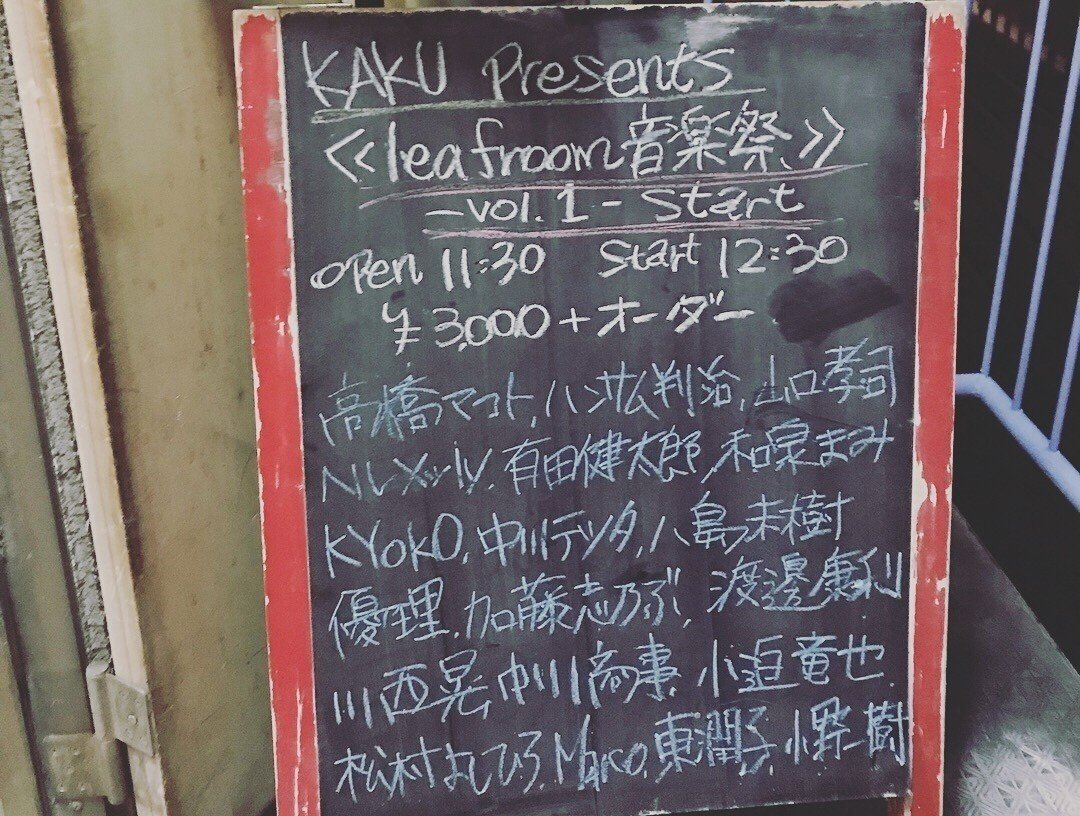 KAKU Presents
<<leafroom音楽祭>>
-vol.1- Start
open 11:30 Start 12:30
¥3,000+オーダー
高橋マコト, ハンサム判治, 山口孝司
有田健太郎, 和泉まみ
KYOKO, 中川テツタ, 八島未樹
優理, 加藤志乃ぶ, 渡邊康利
川西晃 中川商事 小迫竜也
松村よしひろ, 東潤子, 小野一樹